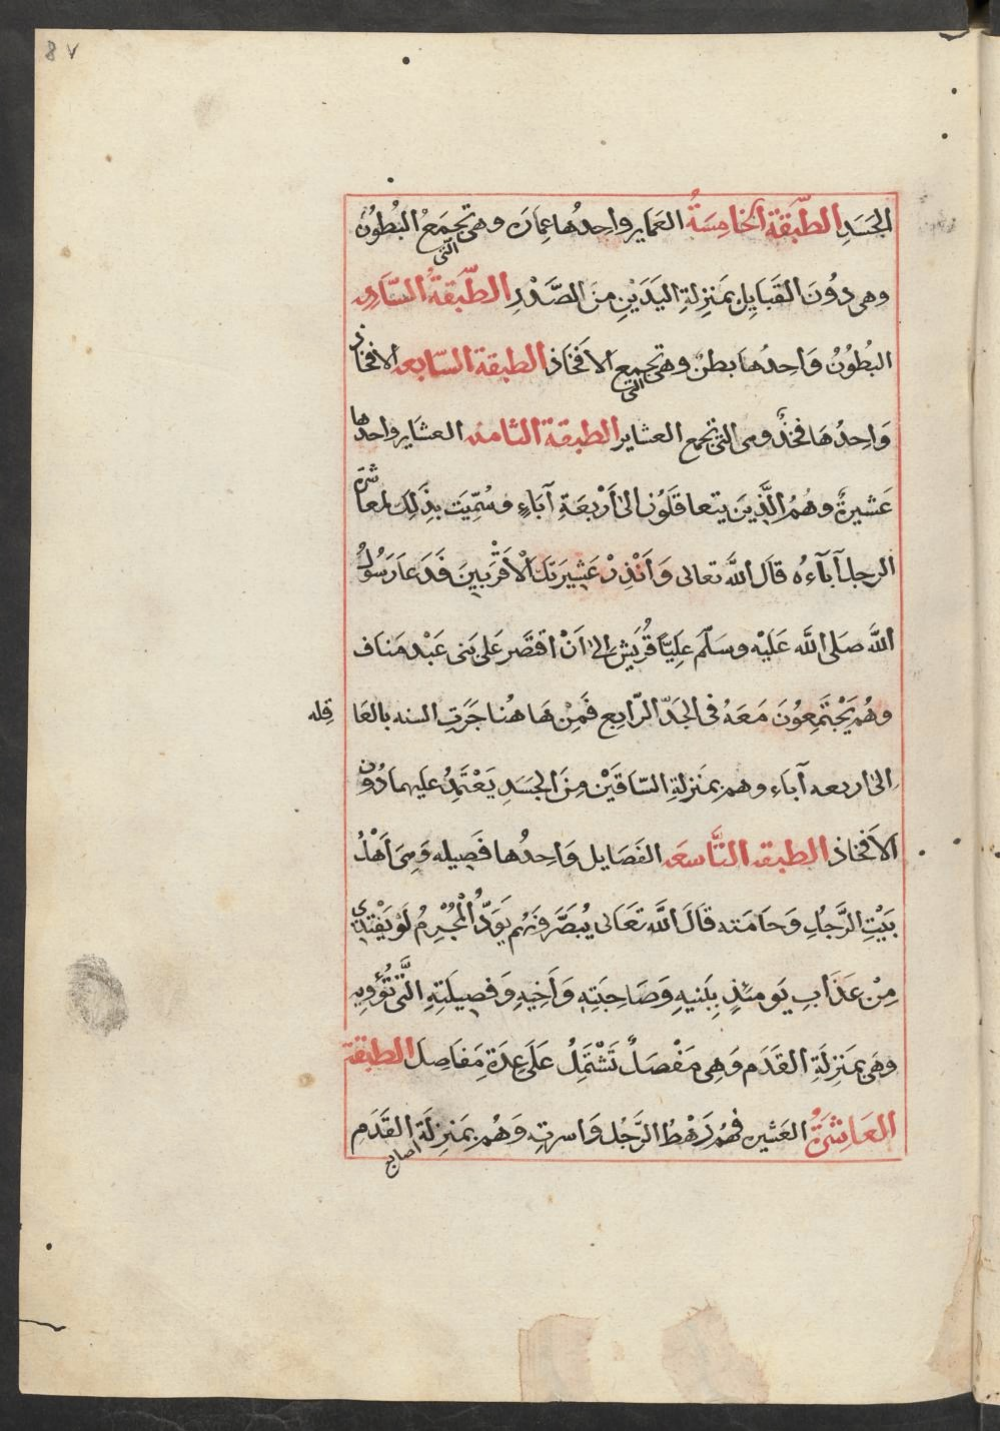 8 ٧
الجَسَدِ الطَّبَقَة الخامِسَةُ العَماير واحِدُها عِمَارَه وهى تجمَعُ البُطُونْ
التى
وهى دُونَ القَبَايِلِ بمَنِزلةِ اليَدَيْنِ مِنَ الصَّدْرِ الطَّبَقَةُ السَّادِسه
البُطُوُنُ وَاحِدُهَا بطنٌ وهى تجمع الاَفخَاذ الطبقة السّابعه الافخاذ
التى
وَاحِدُهَا فخذٌ وهى التى تجمع العشاير الطبقة الثامنه العشاير واحدها
عَشيرةٌ وهُمُ الَّذِينَ يتعاقَلَوُن الىٰ اَرْبعَةِ آبَاءٍ وسُمِّيَت بذَلِكَ لمعاشَرَة
الرجل آبآءه قَال الله تعالى وَاَنْذِرْ عَشِيرَتَكَ الْاَقْرَبِينَ فَدَعَا رَسُولُ
اللَّه صَلى اللَّه عَلَيْه وسَلّم عَلِيًا قُرَيْش الىٰ اَنْ اقتَصَّر عَلى بَنى عَبْد مَناف
وهُم يَجْتَمِعوُنَ مَعَهُ فى الجَدّ الرّابِع فَمِنْ هَا هُنا جَرَتِ السنه بالعَا
قله
اِلىٰ اربعه آباء وهم بمَنزلةِ السّاقَيْن مِنَ الجسَدِ يَعْتَمِدُ عليهما دُون
الاَفخاذ الطبقه التَّاسعَه الفَصَايل وَاحِدُها فَصِيله وَهِىَ اَهْلُ
بَيْتِ الرَّجُلِ وَحَامَته قالَ اللَّه تعَالى يُبَصَّرونَهُم يَوَدُّ الْمُجْرِمُ لَوْ يَفْتَدِى
مِنْ عَذَابِ يَومئذٍ بِبَنيهِ وَصَاحِبَتِهِ وَاَخِيهِ وَفَصِيلَتِهِ الَّتى تُؤْوِيهِ
وهَى بمَنزِلَةِ القَدَم وَهِى مَفْصَلٌ تَشْتَمِلُ عَلَى عِدَةِ مَفاصِلَ الطبقة
العَاشَرَةُ العَشيره فهُمْ رَهْطُ الرَّجُل وَاسرته وَهُم بمَنزِلَة القَدَم
اصابع